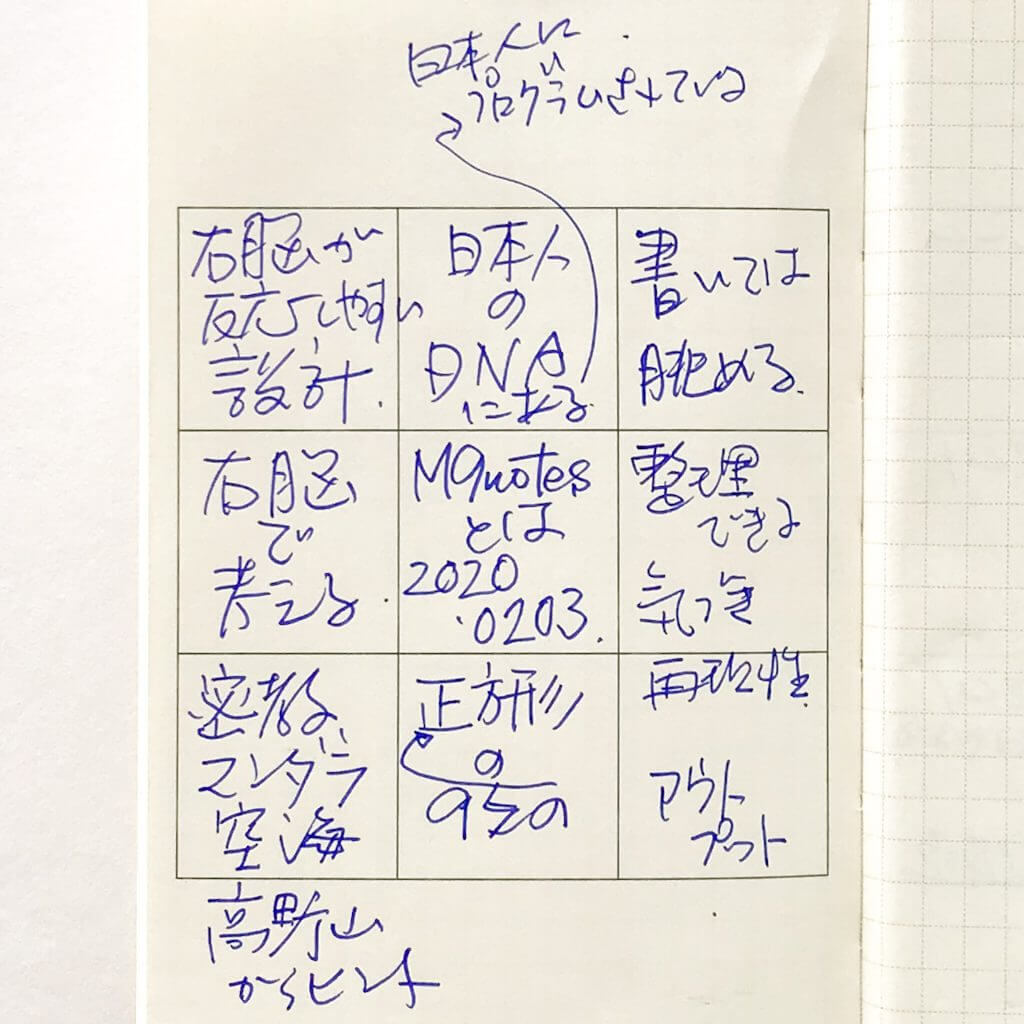 日本人に
プログラムされている
右脳が
反応しやすい
設計.
日本人
の
DNA
にある
書いては
眺める.
右脳
で
考える
M9notes
とは
2020
.0203.
整理
できる
気づき
密教
マンダラ
空海
正方形
の
9zの
再現性
アウト
プット
高野山
からヒント